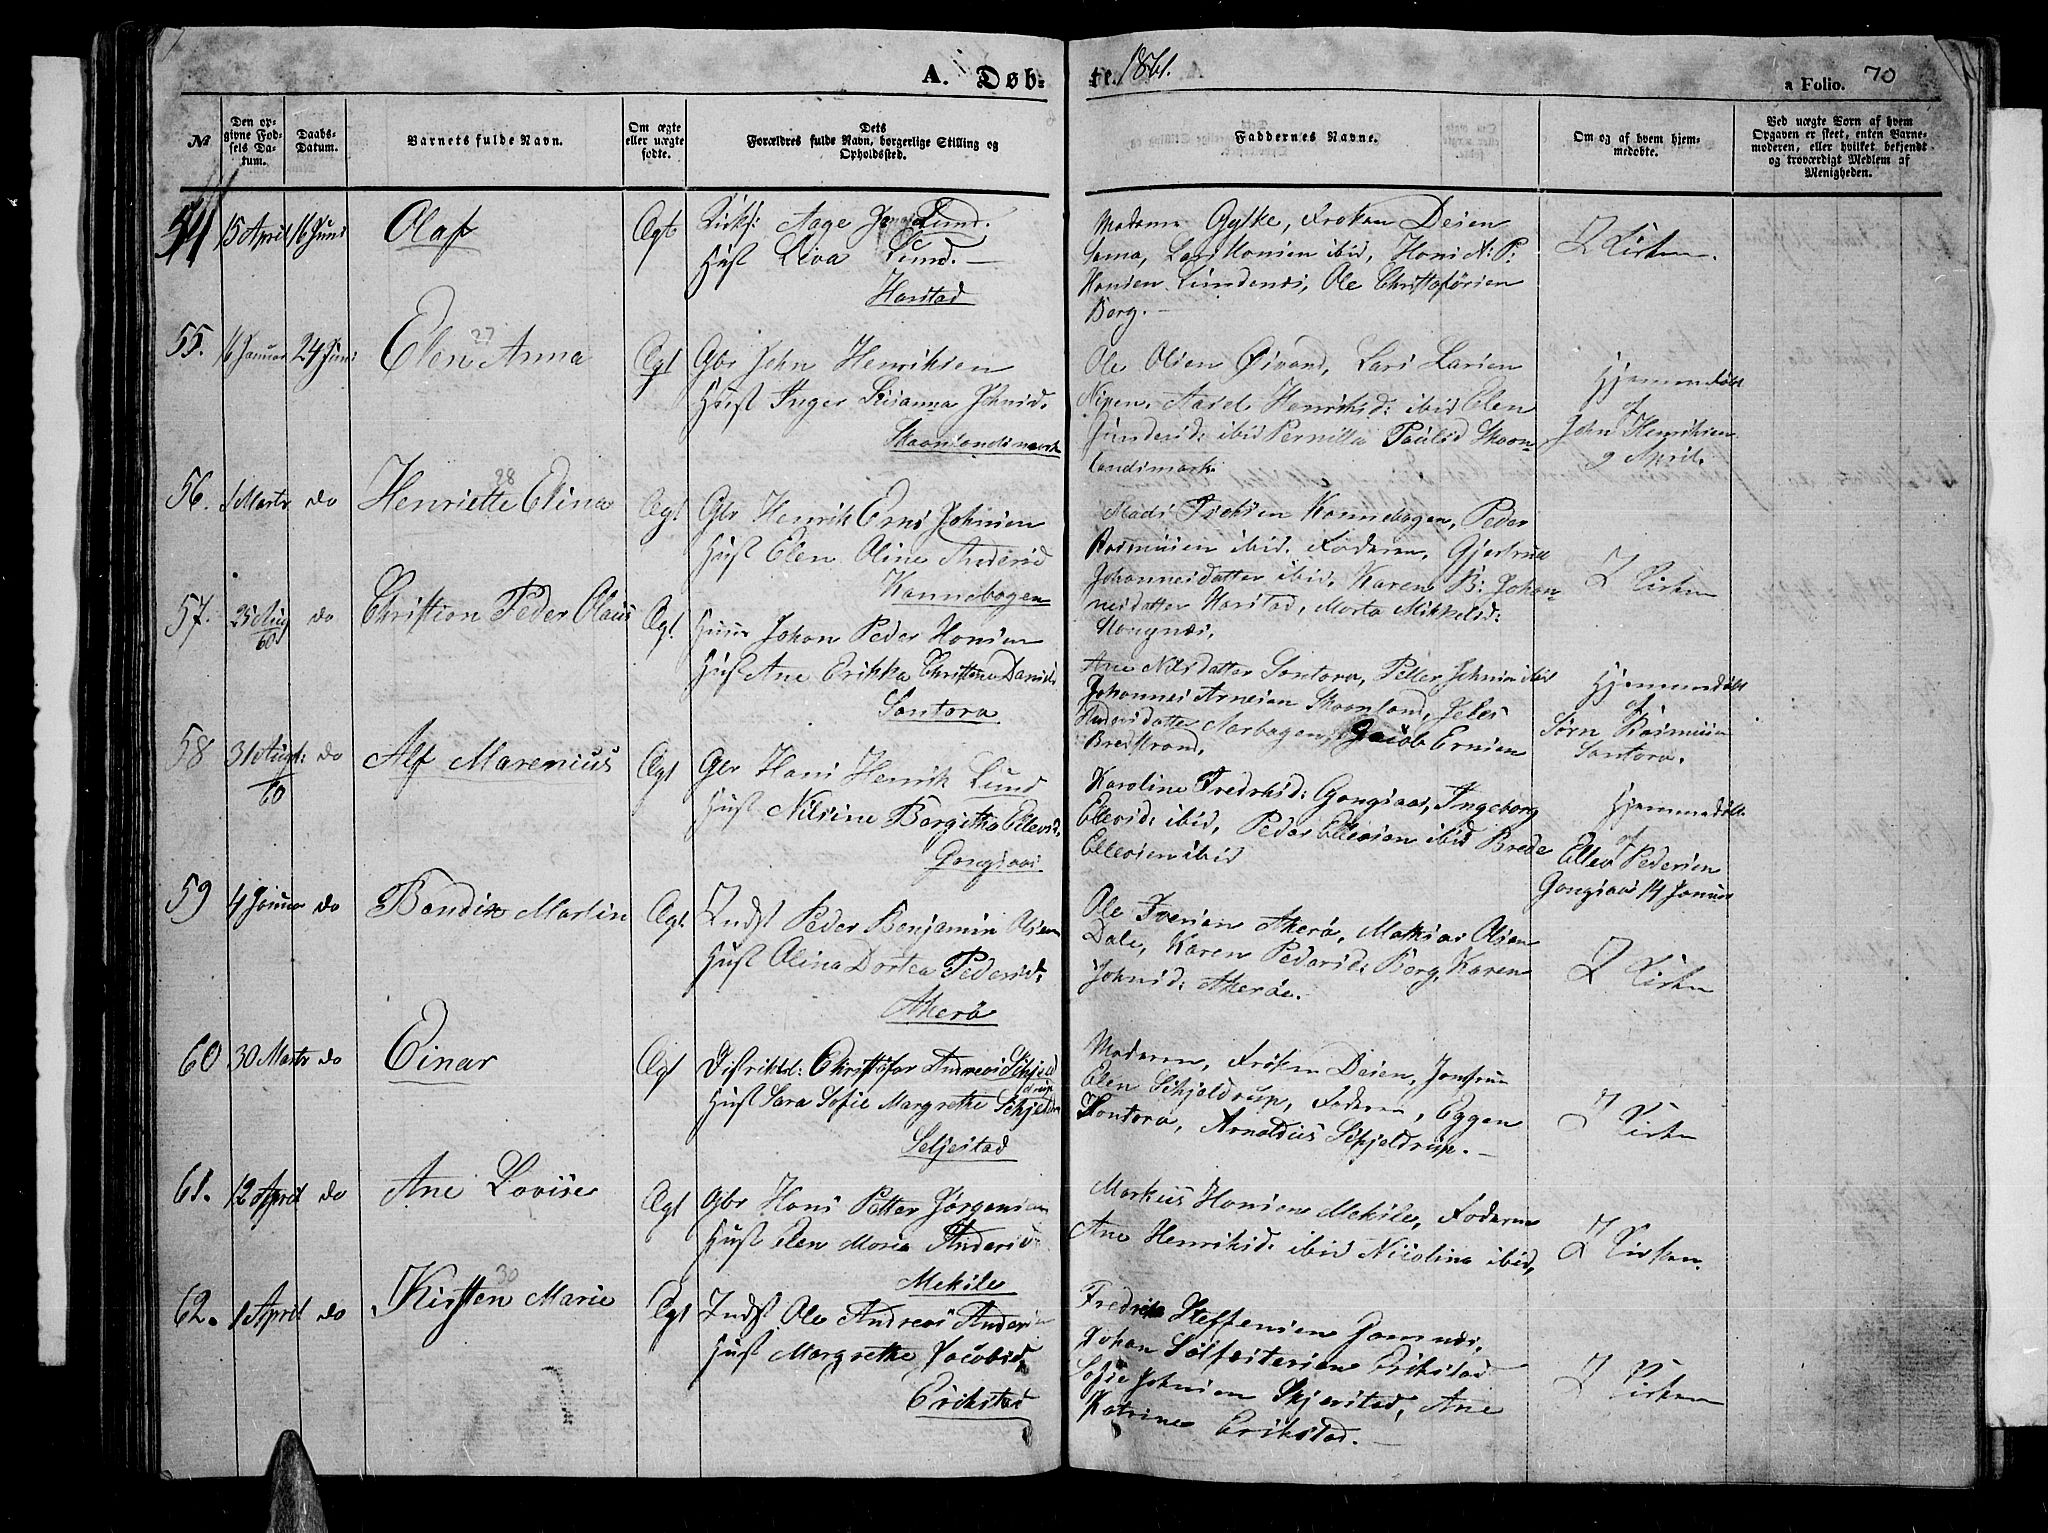 A. Døb-
te. 1861.
a Folio. 70
№
Den op-
givne Fød-
sels Da-
tum.
Daabs-
Datum.
Barnets fulde Navn.
Om ægte
eller uægte
fødte.
Dets
Forældres fulde Navn, borgerlige Stilling og
Opholdssted.
Faddernes Navne.
Om og af hvem hjem-
medøbte.
Ved uægte Børn af hvem
Opgaven er skeet, enten Barne-
moderen, eller hvilket bekjendt
og troværdigt Medlem af
Menigheden.
54 15 April 16 Juni Olaf Ægt Aage Lund.
Hust Liva Lund. —
Harstad
Madam Gylke, Frøken Deien
Sama, Lars Hansen ibid, Hans N: P:
Hansen Lundenes, Ole Christoforsen
Borg. —
I Kirken.
55. 16 Januar 24 Juni Elen Anna 27 Ægt Gbr John Henriksen
Hust Inger Susanna Johnsd.
Skaanlandsmark
Ole Olsen Øivand, Lars Larsen
Nipen, Henriksd: ibid Elen
Gundersd: ibid Pernilla Paulsd Skaan-
landsmark
Hjemmedøbt
af
John Henriksen
9 April.
56. 1 Marts do Henriette Elina 28 Ægt Gbr Henrik Ernst Johnsen
Hust Elen Oline Andersd
Kannebogen
Mads Kannebogen, Peder
Rasmusen ibid. Faderen, Gjertrud
Johannesdatter ibid, Karen B: Johan-
nesdatter Harstad, Marta Mikkelsd:
Stangnes,
I Kirken
57. 25 Aug 60 do Christian Peder Olaus Ægt Huus Johan Peder Hansen
Hust Ane Erikka Christina Daniels
Santora
Ane Nilsdatter Santora, Petter Johnsen ibid
Johannes Arnesen Skaanland,
Andersdatter Aarbogen, Jacob Ernsen
Bredstrand,
Hjemmedøbt
af
Sørn Rasmusen
Santora.
58 31 Augt: 60 do Alf Marenius Ægt Gbr Hans Henrik Lund
Hust Nilsine Bergitha Ellevsd.
Gangsaas
Karoline Fredriksd: Gangsaas, Ingeborg
Ellevsd: ibid, Peder Ellevsen ibid Brede
Ellevsen ibid
Hjemmedøbt
af
Ellev Pedersen
Gangsaas 14 Januar
59 4 Januar do Bendix Martin Ægt. Indst Peder Benjamin Olsen
Hust Olina Dortea Pedersd:
Akerø
Ole Iversen Akerø, Mathias Olsen
Dale, Karen Pedersd: Berg, Karen
Johnsd: Akerøe.
I Kirken
60 30 Marts do Einar Ægt Distriktsl: Christofer Andreas Schjeld
drup
Hust Sara Sofie Margrethe Schjeld
Seljestad
Moderen, Frøken Deien, Jomfru
Elen Schjeldrup, Faderen, Eggen
Santora, Arnoldus Schjeldrup. —
I Kirken
61. 12 April do Ane Lovise Ægt Gbr Hans Petter Jørgensen
Hust Elen Maria Andersd
Mekile
Markus Hansen Mekile, Faderen
Ane Henriksd: ibid Nicolina ibid,
I Kirken.
62. 1 April do Kirsten Marie 30 Ægt Indst Ole Andreas Anders
Hust Margrethe Jacobsd.
Erikstad
Fredrik Steffensen Gamnes,
Johan Erikstad
Sofie Johnsen Skjerstad, Ane
Katrine Erikstad. —
I Kirken